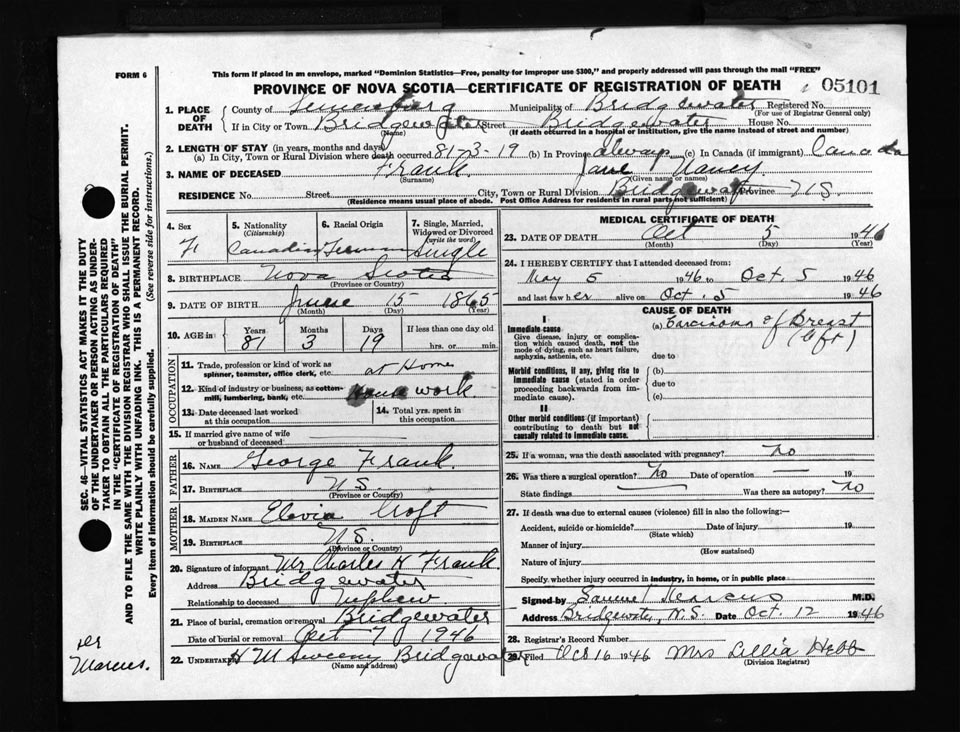 FORM 6
This form if placed in an envelope, marked "Dominion Statistics—Free, penalty for improper use $300," and properly addressed will pass through the mail "FREE"
PROVINCE OF NOVA SCOTIA—CERTIFICATE OF REGISTRATION OF DEATH
05101
1. PLACE OF DEATH
County of Lunenburg Municipality of Bridgewater Registered No.
(For use of Registrar General only)
If in City or Town Bridgewater Street Bridgewater House No.
(Name) (If death occurred in a hospital or institution, give the name instead of street and number)
2. LENGTH OF STAY (in years, months and days)
(a) In City, Town or Rural Division where death occurred 81-3-19 (b) In Province always (c) In Canada (if immigrant) Canada
3. NAME OF DECEASED Frank Jane Nancy
(Surname) (Given name or names)
RESIDENCE No. Street City, Town or Rural Division Bridgewater Province N.S.
(Residence means usual place of abode. Post Office Address for residents in rural parts not sufficient)
4. Sex
F
5. Nationality
(Citizenship)
Canadian
6. Racial Origin
German
7. Single, Married, Widowed or Divorced
(write the word)
Single
8. BIRTHPLACE Nova Scotia
(Province or Country)
9. DATE OF BIRTH June 15 1865
(Month) (Day) (Year)
10. AGE in Years Months Days If less than one day old
81 3 19 hrs. or min.
OCCUPATION
11. Trade, profession or kind of work as spinner, teamster, office clerk, etc. at Home
12. Kind of industry or business, as cotton-mill, lumbering, bank, etc. House work
13. Date deceased last worked at this occupation
14. Total yrs. spent in this occupation
15. If married give name of wife or husband of deceased
FATHER
16. NAME George Frank.
17. BIRTHPLACE N.S.
(Province or Country)
MOTHER
18. MAIDEN NAME Croft
19. BIRTHPLACE N.S.
(Province or Country)
20. Signature of informant Mr Charles H Frank.
Address Bridgewater
Relationship to deceased Nephew
21. Place of burial, cremation or removal Bridgewater
Date of burial or removal Oct 7 1946
22. UNDERTAKER H M Sweeny Bridgewater
(Name and address)
MEDICAL CERTIFICATE OF DEATH
23. DATE OF DEATH Oct 5 1946
(Month) (Day) (Year)
24. I HEREBY CERTIFY that I attended deceased from:
May 5 1946 to Oct. 5 1946
and last saw her alive on Oct. 5 1946
CAUSE OF DEATH
I
Immediate cause
Give disease, injury or complication which caused death, not the mode of dying, such as heart failure, asphyxia, asthenia, etc.
(a) Carcinoma of Breast
(left)
due to
Morbid conditions, if any, giving rise to immediate cause (stated in order proceeding backwards from immediate cause).
(b)
due to
(c)
II
Other morbid conditions (if important) contributing to death but not causally related to immediate cause.
25. If a woman, was the death associated with pregnancy? no
26. Was there a surgical operation? No Date of operation 19
State findings Was there an autopsy? No
27. If death was due to external causes (violence) fill in also the following:—
Accident, suicide or homicide? Date of injury 19
(State which)
Manner of injury
(How sustained)
Nature of injury
Specify whether injury occurred in industry, in home, or in public place
Signed by Samuel Marcus M.D.
Address Bridgewater, N.S. Date Oct. 12 1946
28. Registrar's Record Number
29. Filed Oct 16 1946 Mrs Lillia Hebb
(Division Registrar)
SEC. 46—VITAL STATISTICS ACT MAKES IT THE DUTY
OF THE UNDERTAKER OR PERSON ACTING AS UNDER-
TAKER TO OBTAIN ALL THE PARTICULARS REQUIRED
IN THE "CERTIFICATE OF REGISTRATION OF DEATH"
AND TO FILE THE SAME WITH THE DIVISION REGISTRAR WHO SHALL ISSUE THE BURIAL PERMIT.
WRITE PLAINLY WITH UNFADING INK. THIS IS A PERMANENT RECORD.
Every item of information should be carefully supplied. (See reverse side for instructions.)
Marcus.